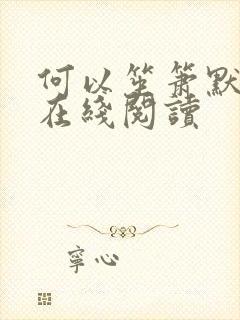 何以笙箫默
在綫閱讀
寧心